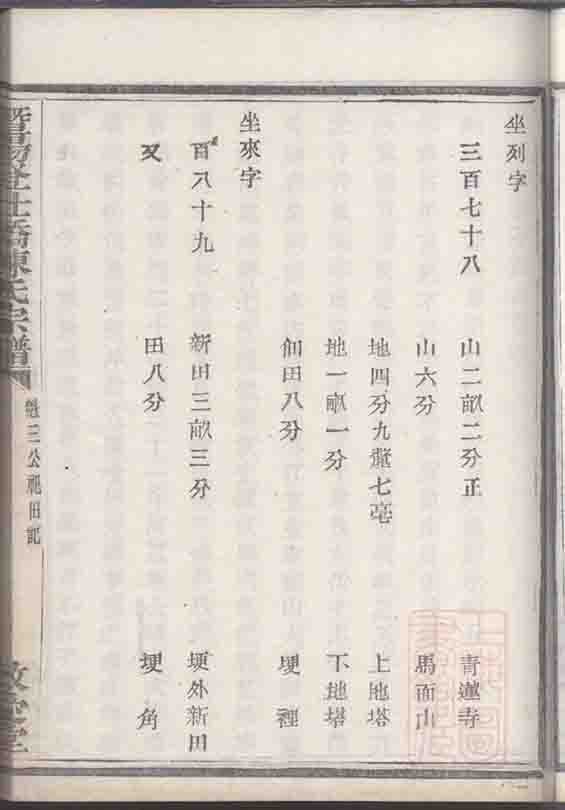 坐列字
三百七十八 山二畝二分正 青蓮寺
山六分 馬面山
地四分九釐七毫 上地塔
地一畝一分 下地塔
佃田八分 埂裡
坐來字
百八十九 新田三畝三分 埂外新田
又 田八分 埂角
暨陽 橋陳氏宗譜
三公祀田記